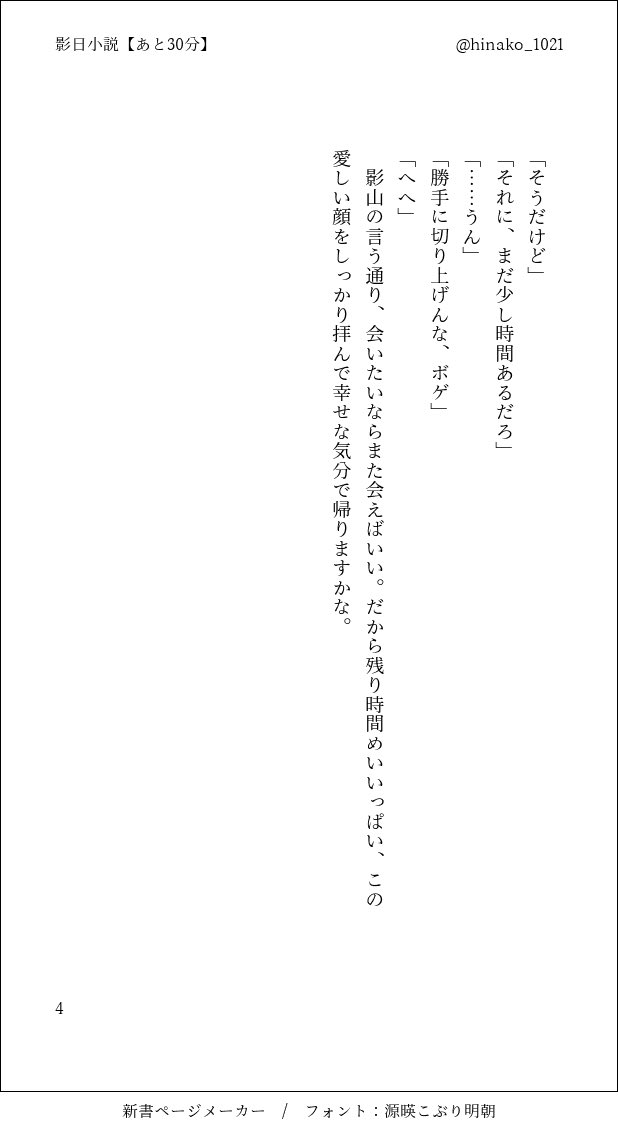 影日小説【あと30分】
@hinako_1021
「そうだけど」
「それに、まだ少し時間あるだろ」
「……うん」
「勝手に切り上げんな、ボゲ」
「へへ」
　影山の言う通り、会いたいならまた会えばいい。だから残り時間めいいっぱい、この
愛しい顔をしっかり拝んで幸せな気分で帰りますかな。
4
新書ページメーカー　/　フォント：源暎こぶり明朝